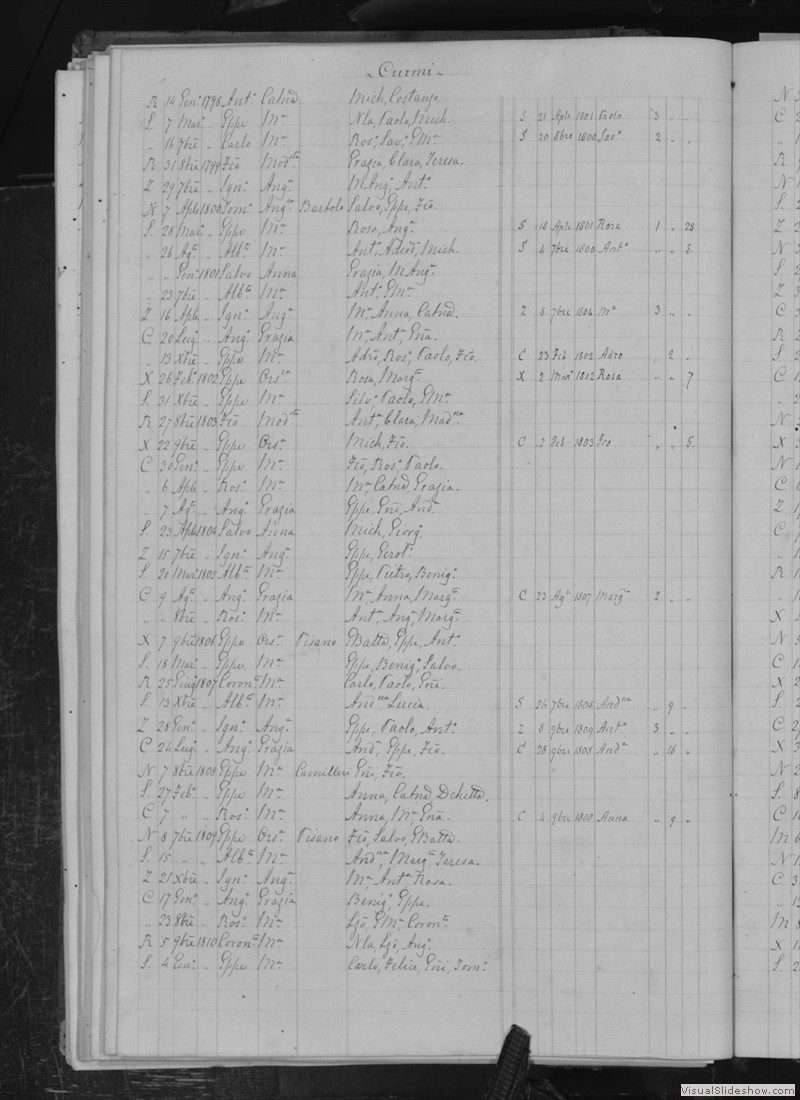 Curmi
R 14 Gen: 1798 Ant: Catnd Mich, Costanza
S. 7 Mar: " Gppe Mª Nla, Paolo, Mich. S 21 Aple 1801 Paolo 3 " "
" 16 7bre " Carlo Mª Ros: Sav: GMª S 20 8bre 1800 Sav: 2 " "
R 31 8bre 1799 Fco Modta Grazia, Clara, Teresa.
Z 29 7bre " Ign: Angª MAng: Ant:
N 7 Aple 1800 Tom: Angca Bartolo Salvo, Gppe, Fco.
S. 28 Mar: " Gppe Mª Rosa, Angª S 18 Aple 1801 Rosa 1 " 28
" 26 Ag: " Albto Mª Ant: Adeod, Mich. S 4 7bre 1800 Ant: " " 8.
" " Gen: 1801 Salvo Anna Grazia, MAngª
" 23 7bre " Albto Mª Ant: GMª
Z 16 Aple " Ign: Angª Mª Anna, Catnd. Z 8 7bre 1804 Mª 3 " "
C 20 Lug: " Ang: Grazia Mª Ant: Gna.
" 13 Xbre " Gppe Mª Adro, Ros: Paolo, Fco. C 23 Feb 1802 Adro " 2 "
X 26 Feb: 1802 Gppe Orsla Rosa, Margta X 2 Mar: 1802 Rosa " " 7
S. 31 Xbre " Gppe Mª Silv: Paolo, GMª
R 27 8bre 1803 Fco Modta Antª Clara, Madna
X 22 9bre " Gppe Ors: Mich, Fco. C 2 Feb 1803 Fco " " 5.
C 30 Gen: " Gppe Mª Fco, Ros: Paolo.
" 6 Aple " Ros: Mª Mª Catnd, Grazia.
" 7 Ag: " Ang: Grazia Gppe, Gni, And:
S. 23 Aple 1804 Salvo Anna Mich, Giorg:
Z 15 7bre " Ign: Angª Gppe, Gerol:
S. 20 Mar: 1805 Albto Mª Gppe, Pietro, Benig:
C 9 Ag: " Ang: Grazia Mª Anna, Margta C 23 Ag: 1807 Margta 2 " "
" " 8bre " Ros: Mª Antª Ang: Margta
X 7 9bre 1806 Gppe Ors: Pisano GBatta, Gppe, Ant:
S. 18 Mar: " Gppe Mª Gppe, Benig: Salvo.
R 25 Giug 1807 Coron: Mª Carlo, Paolo, Gni.
S 13 Xbre " Albto Mª Andna Lucia. S 26 7bre 1808 Andna " 9 "
Z 28 Gen: " Ign: Angª Gppe, Paolo, Ant: Z 8 9bre 1809 Ant: 3 " "
C 24 Lug: " Ang: Grazia And: Gppe, Fco. C 28 9bre 1808 And: " 16 "
N 7 8bre 1808 Gppe Mª Camilleri Gni, Fco.
S. 27 Feb: " Gppe Mª Anna, Catnd Dchetta.
C 7 " " Ros: Mª Anna, Mª Gna. C 4 9bre 1808 Anna " 9 "
N 8 7bre 1809 Gppe Ors: Pisano Fco, Salvo, GBatta.
S. 15 " " Albto Mª Andna, Margta Teresa.
Z 21 Xbre " Ign: Angª Mª Antª Rosa.
C 17 Gen: " Ang: Grazia Benig: Gppe.
" 23 8bre " Ros: Mª Ljo, GMª Coronta
R 5 9bre 1810 Coron: Mª Nla, Ljo, Ang:
S. 4 Gen: " Gppe Mª Carlo, Felice, Gni, Tom:
VisualSlideshow.com